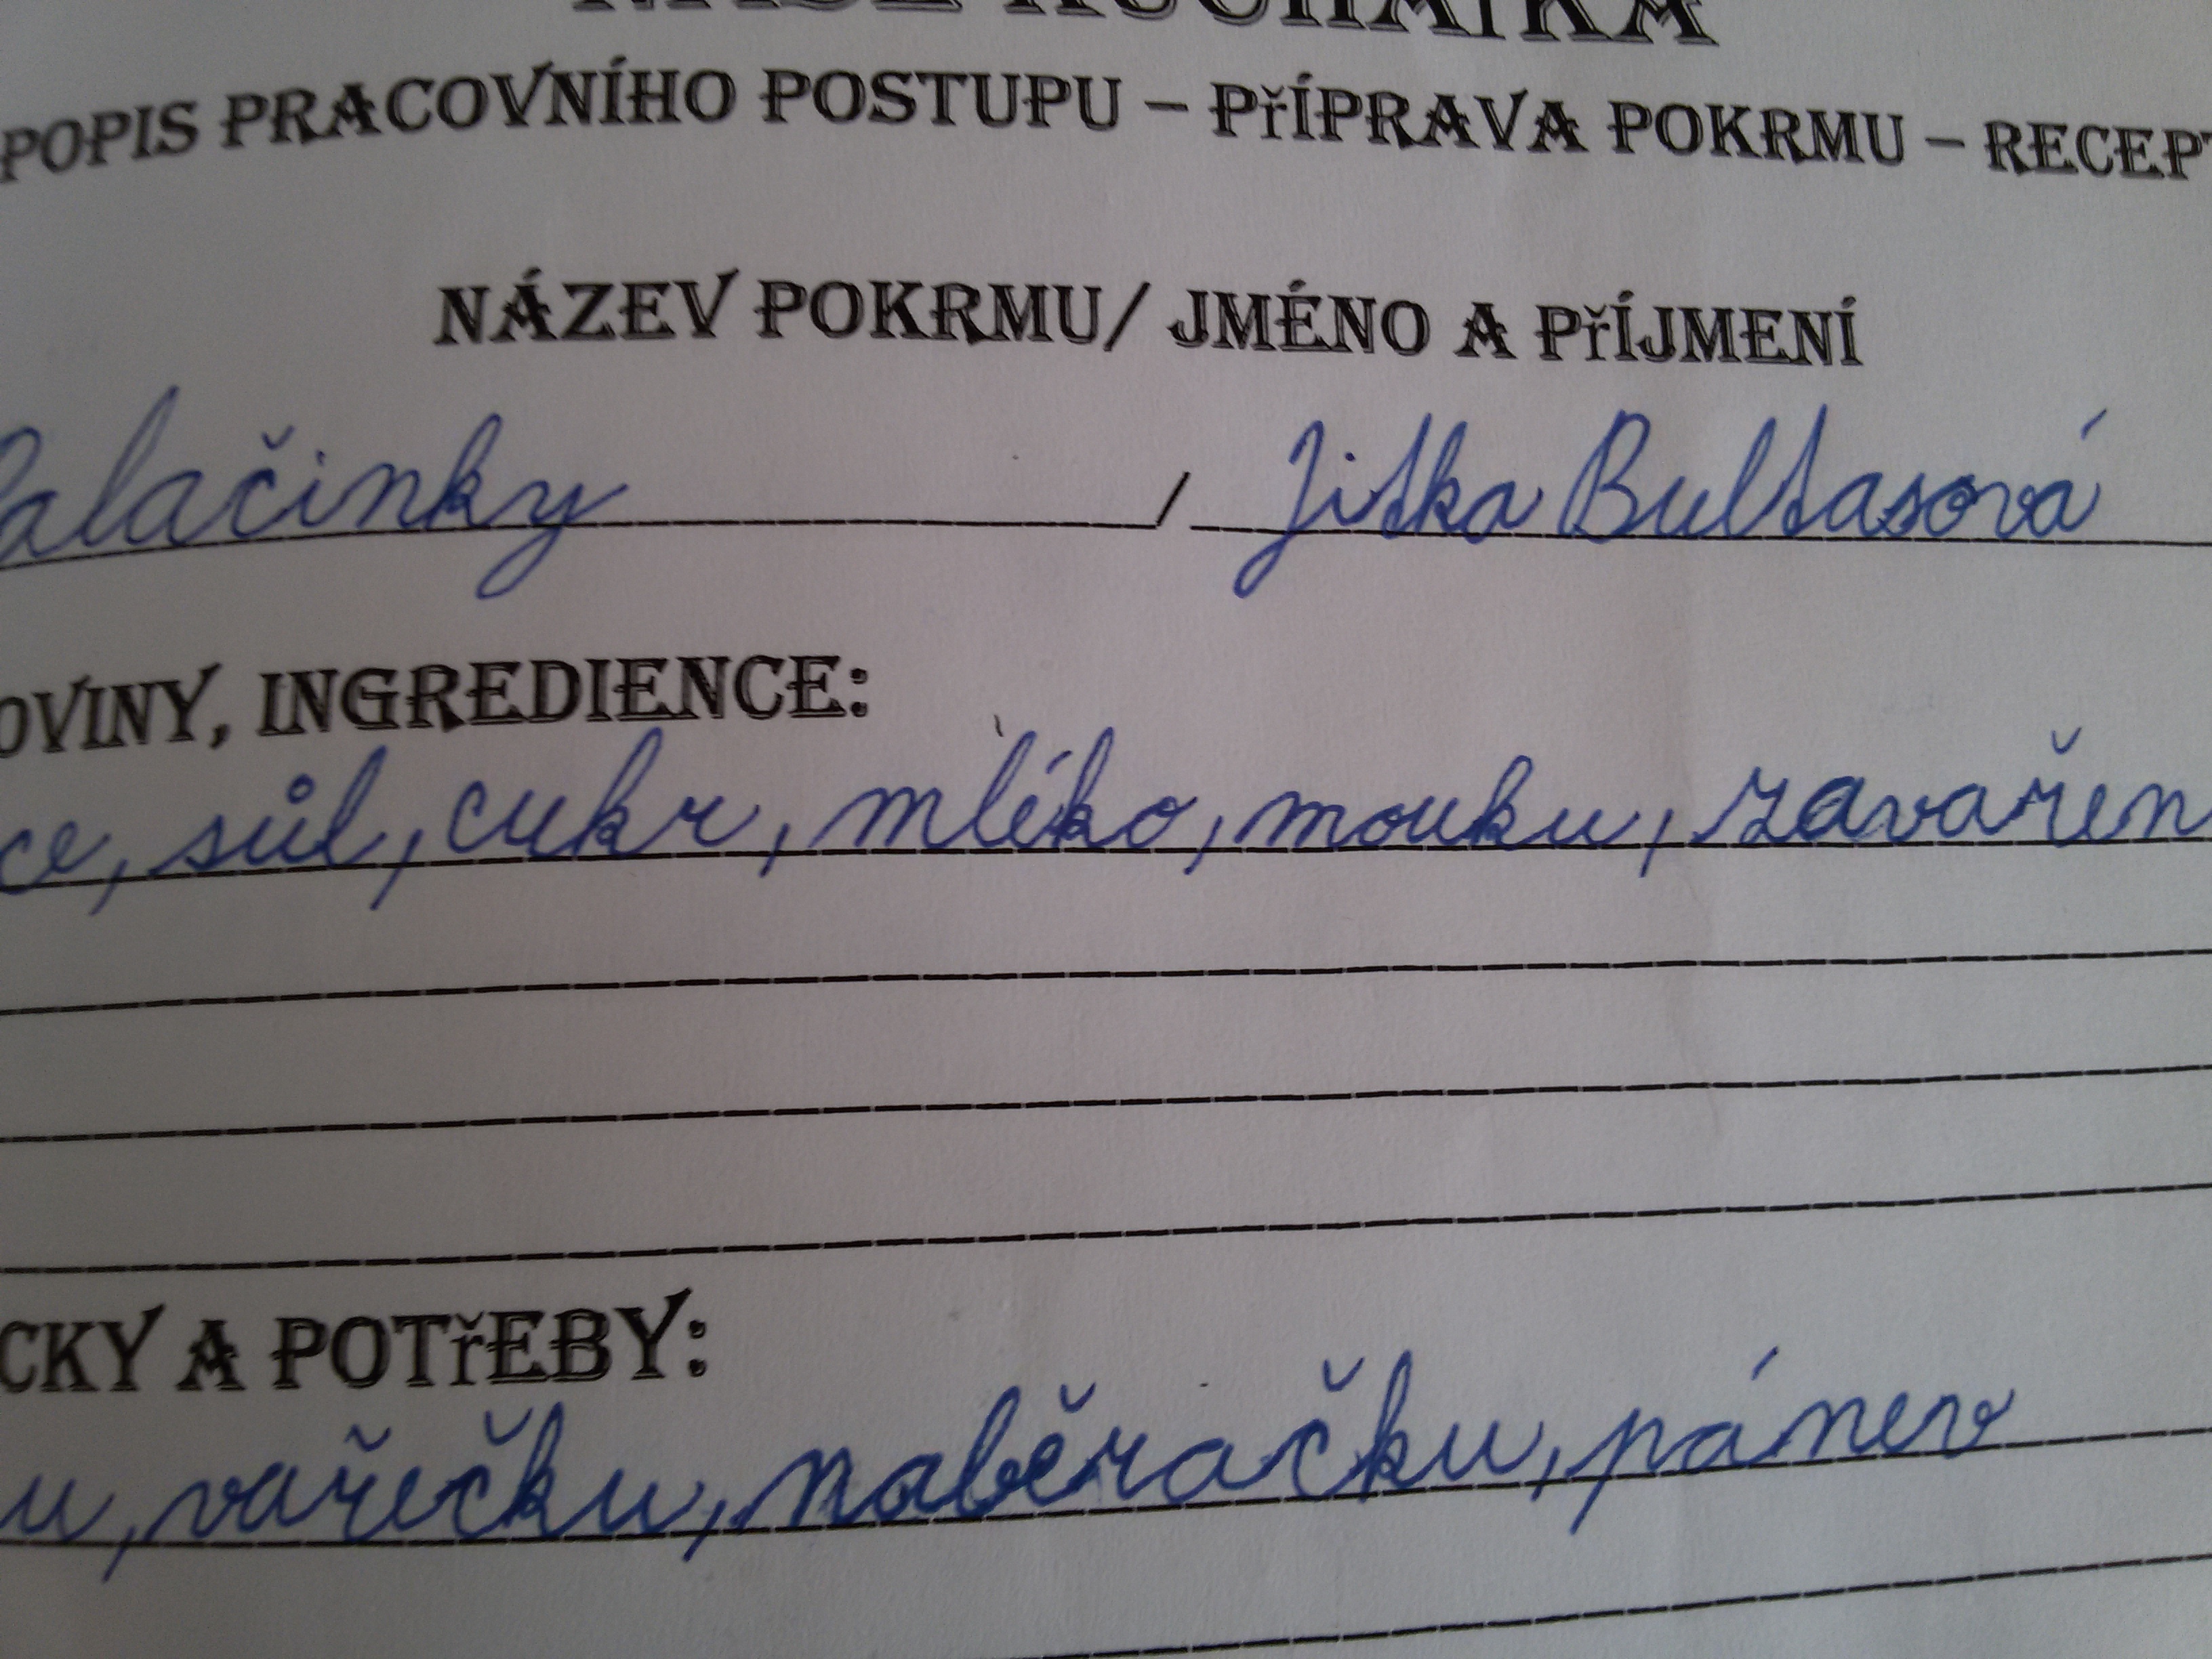 NAŠE KUCHAŘKA
POPIS PRACOVNÍHO POSTUPU – PŘÍPRAVA POKRMU – RECEPT
NÁZEV POKRMU/ JMÉNO A PŘÍJMENÍ
Palačinky / Jitka Bultasová
OVINY, INGREDIENCE:
ce, sůl, cukr, mléko, mouku, zavařen
CKY A POTŘEBY:
u, vařečku, naběračku, pánev